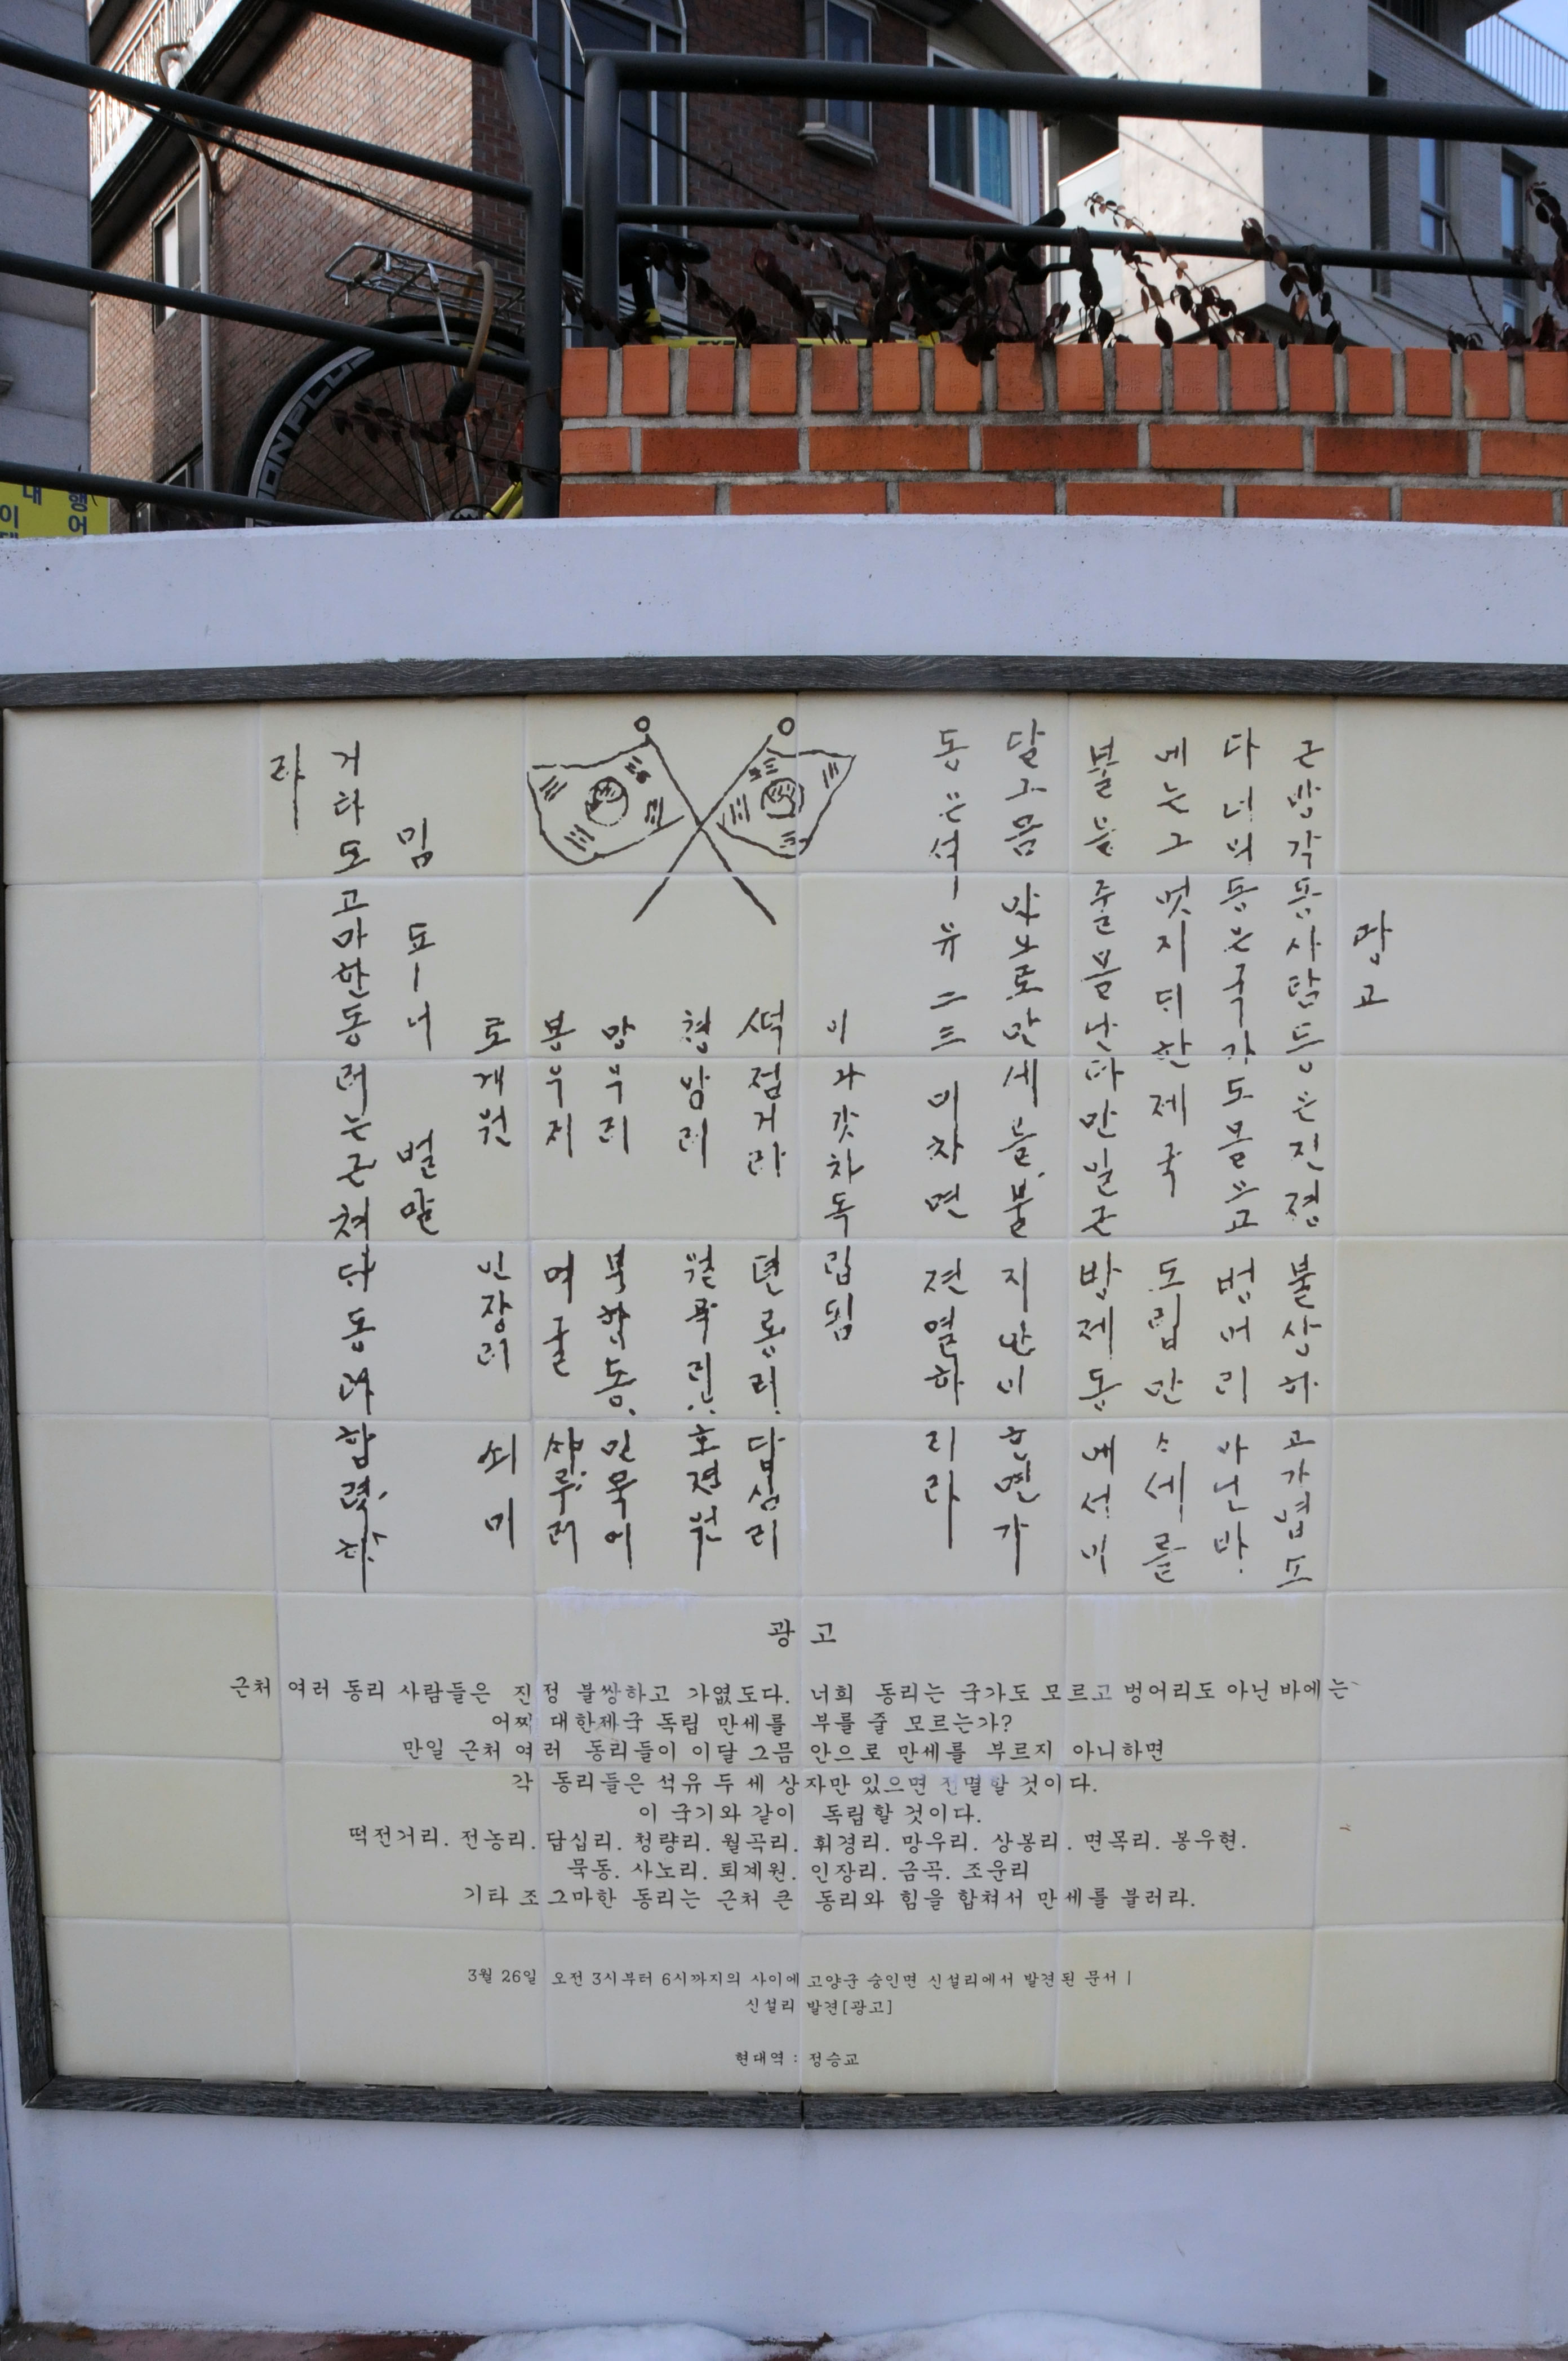 광고
근방각동사람등은진졍불상하고가녑도
다너의동은국가도몰으고벙어리아닌바
에는그멋지퇴한제국도립만세를
불을줄을난다만일근방제동에서이
달그믐안으로만세를불지안이한면가
동은석유二三이차면젼열하리라
이와갓차독립됨
떡졈거리 뎐롱리 답심리
쳥량리 월곡리 호경원
망우리
봉우재
로계원 인장리 쇠미
벌말
거타도고마한동리는근쳐다동과합력하
라
광고
근처 여러 동리 사람들은 진정 불쌍하고 가엾도다. 너희 동리는 국가도 모르고 벙어리도 아닌 바에는
어찌 대한제국 독립 만세를 부를 줄 모르는가?
만일 근처 여러 동리들이 이달 그믐 안으로 만세를 부르지 아니하면
각 동리들은 석유 두세 상자만 있으면 전멸할 것이다.
이 국기와 같이 독립할 것이다.
떡전거리. 전농리. 답십리. 청량리. 월곡리. 휘경리. 망우리. 상봉리. 면목리. 봉우현.
묵동. 사노리. 퇴계원. 인장리. 금곡. 조운리
기타 조그마한 동리는 근처 큰 동리와 힘을 합쳐서 만세를 불러라.
3월 26일 오전 3시부터 6시까지의 사이에 고양군 숭인면 신설리에서 발견된 문서 |
신설리 발견[광고]
현대역 : 정승교